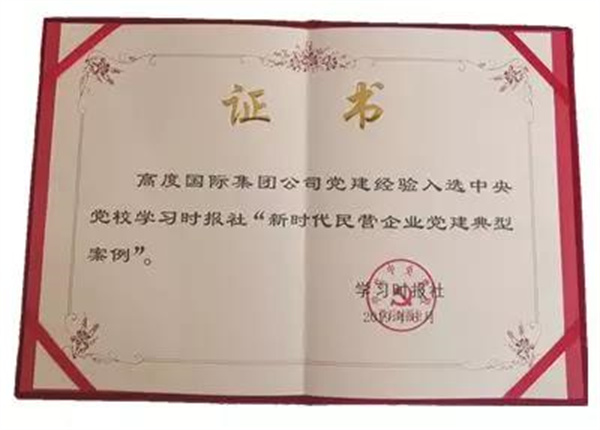 证书
高度国际集团公司党建经验入选中央
党校学习时报社“新时代民营企业党建典型
案例”。
学习时报社